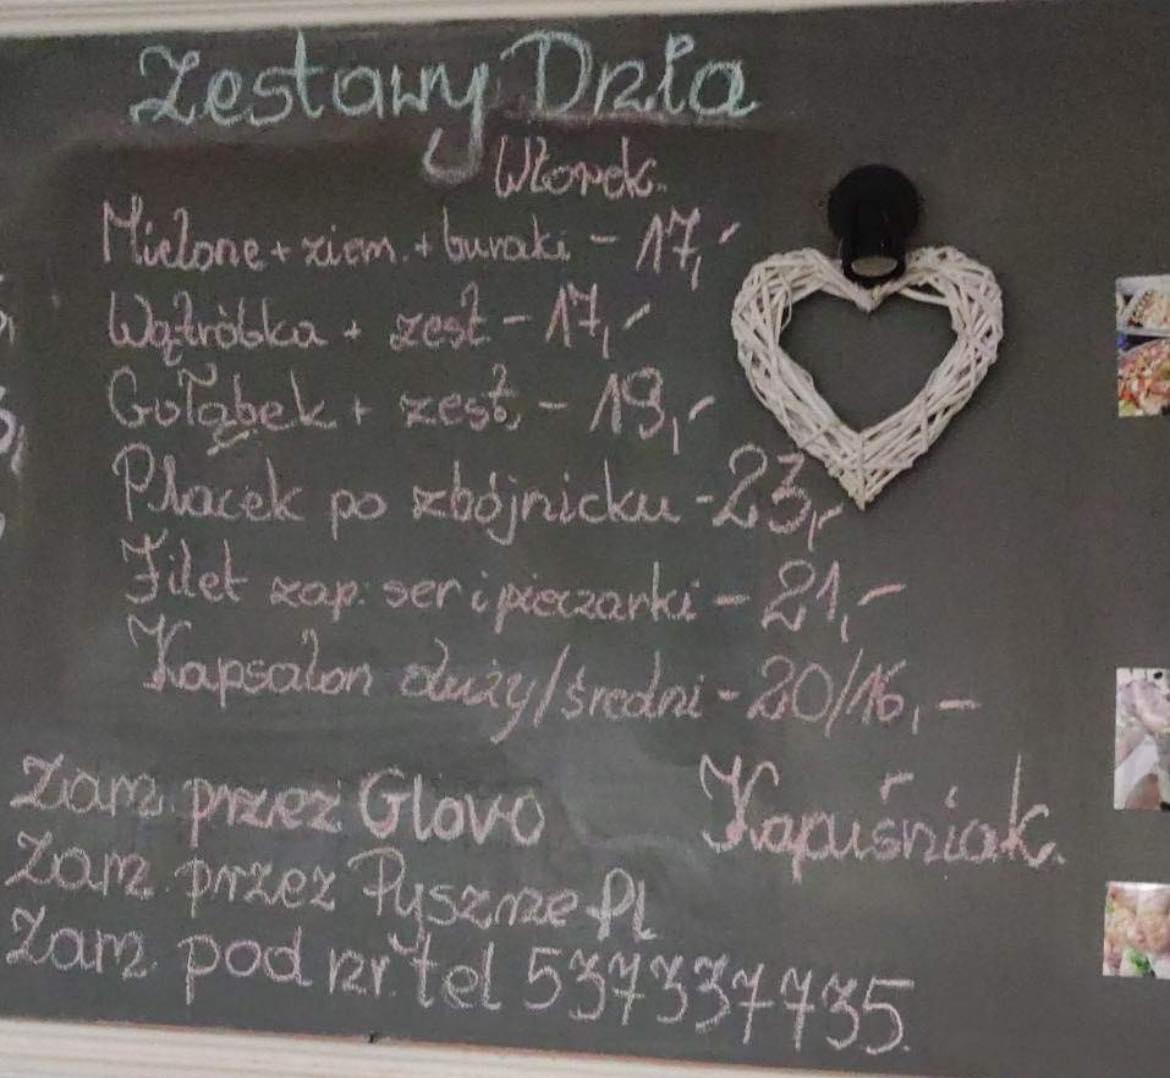 Zestawy Dnia
Wtorek.
Mielone + ziem. + buraki - 17,-
Wątróbka + zest - 17,-
Gołąbek + zest - 19,-
Placek po zbójnicku - 23,-
Filet zap. ser i pieczarki - 21,-
Kapsalon duży/średni - 20/16,-
Zam przez Glovo
Kapuśniak.
Zam. przez Pyszne.Pl
Zam. pod nr. tel 537337735.